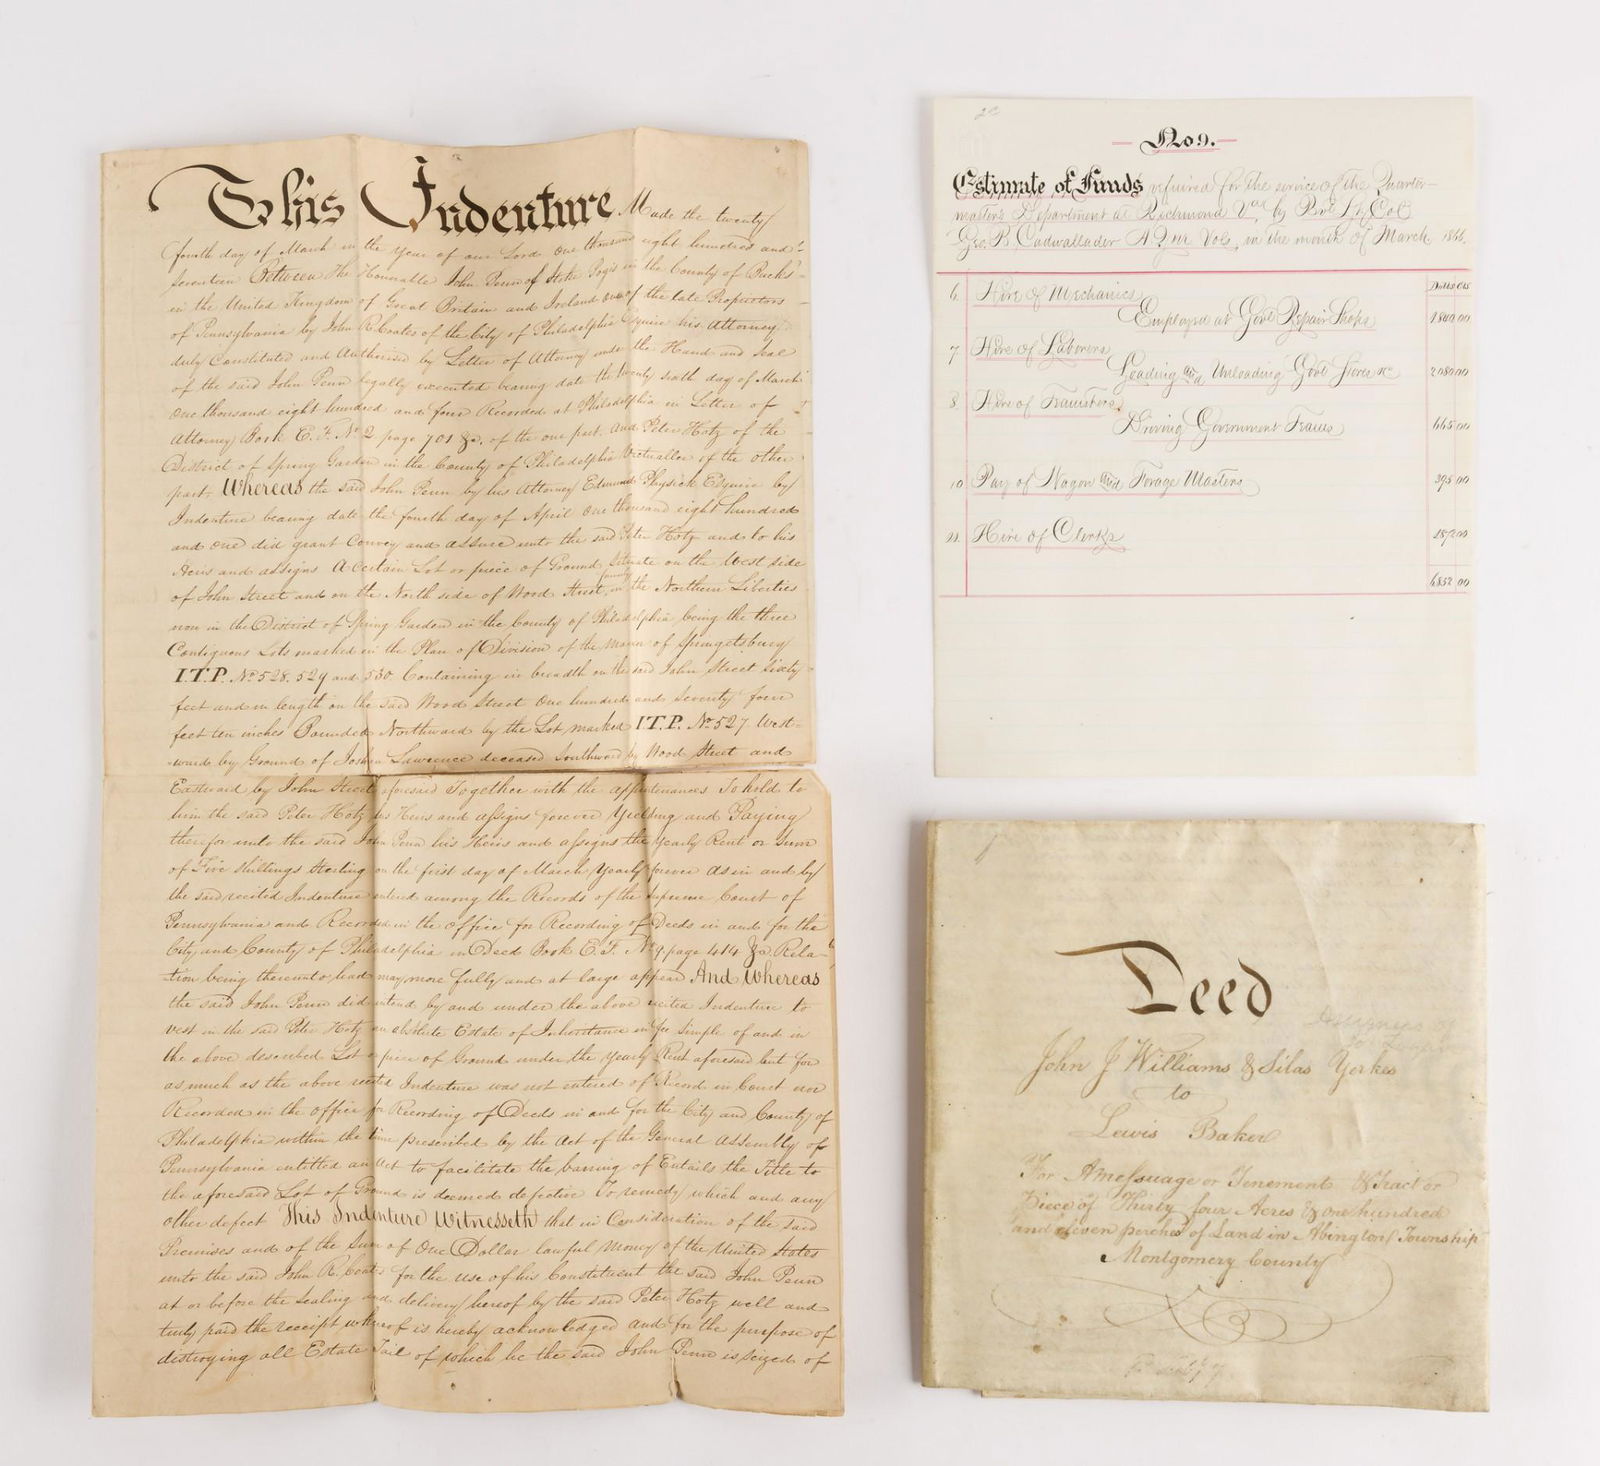 This Indenture Made the twenty
fourth day of March in the year of our Lord One thousand eight hundred and
seventeen Between The Honourable John Penn of Stoke Pogis in the County of Bucks
in the United Kingdom of Great Britain and Ireland one of the late Proprietors
of Pennsylvania by John R. Coates of the City of Philadelphia Esquire his Attorney
duly Constituted and Authorised by Letter of Attorney under the Hand and Seal
of the said John Penn legally executed bearing date the twenty sixth day of March
One thousand eight hundred and four Recorded at Philadelphia in Letter of
Attorney Book E. F. No 2 page 701 &c. of the one part. And Peter Hotz of the
District of Spring Garden in the County of Philadelphia Victualler of the other
part. Whereas the said John Penn by his Attorney Edmund Physick Esquire by
Indenture bearing date the fourth day of April One thousand eight hundred
and one did grant Convey and assure unto the said Peter Hotz and to his
Heirs and assigns A Certain Lot or piece of Ground situate on the West side
of John Street and on the North side of Wood Street, formerly in the Northern Liberties
now in the District of Spring Garden in the County of Philadelphia being the three
Contiguous Lots marked in the Plan of Division of the Manor of Springetsbury
I.T.P. No 528. 529 and 530 Containing in breadth on the said John Street Sixty
feet and in length on the said Wood Street One hundred and Seventy four
feet ten inches Bounded Northward by the Lot marked I.T.P. No 527 West-
-ward by Ground of Joshua Lawrence deceased Southward by Wood Street and
Eastward by John Street aforesaid Together with the appurtenances To hold to
him the said Peter Hotz his Heirs and assigns forever Yielding and Paying
therefor unto the said John Penn his Heirs and assigns the Yearly Rent or Sum
of Five Shillings Sterling on the first day of March Yearly forever As in and by
the said recited Indenture entered among the Records of the Supreme Court of
Pennsylvania and Recorded in the Office for Recording of Deeds in and for the
City and County of Philadelphia in Deed Book E. F. No 9 page 414 &c. Rela-
-tion being thereunto had may more fully and at large appear And Whereas
the said John Penn did intend by and under the above recited Indenture to
vest in the said Peter Hotz an absolute Estate of Inheritance in fee Simple of and in
the above described Lot or piece of Ground under the Yearly Rent aforesaid but for
as much as the above recited Indenture was not entered of Record in Court nor
Recorded in the Office for Recording of Deeds in and for the City and County of
Philadelphia within the time prescribed by the Act of the General Assembly of
Pennsylvania entitled an Act to facilitate the barring of Entails the Title to
the aforesaid Lot of Ground is deemed defective To remedy which and any
other defect This Indenture Witnesseth that in Consideration of the said
Premises and of the Sum of One Dollar lawful Money of the United States
unto the said John R. Coates for the use of his Constituent the said John Penn
at or before the Sealing and delivery hereof by the said Peter Hotz well and
truly paid the receipt whereof is hereby acknowledged and for the purpose of
destroying all Estate Tail of which he the said John Penn is seized of
No 9.
Estimate of Funds required for the service of the Quarter-
master's Department at Richmond Va, by Bvt Lt Col
Geo. B. Cadwallader A.Q.M. Vols, in the month of March, 1866.
Dolls Cts
6. Hire of Mechanics
Employed at Govt Repair Shops 1840 00
7. Hire of Laborers
Loading and Unloading Govt Stores &c 2080 00
8. Hire of Teamsters
Driving Government Teams 665 00
10 Pay of Wagon and Forage Masters 395 00
11. Hire of Clerks 1872 00
6852 00
Deed
John J Williams & Silas Yerkes
to
Lewis Baker
For A messuage or Tenement & Tract or
Piece of Thirty four Acres & one hundred
and eleven perches of Land in Abington Township
Montgomery County